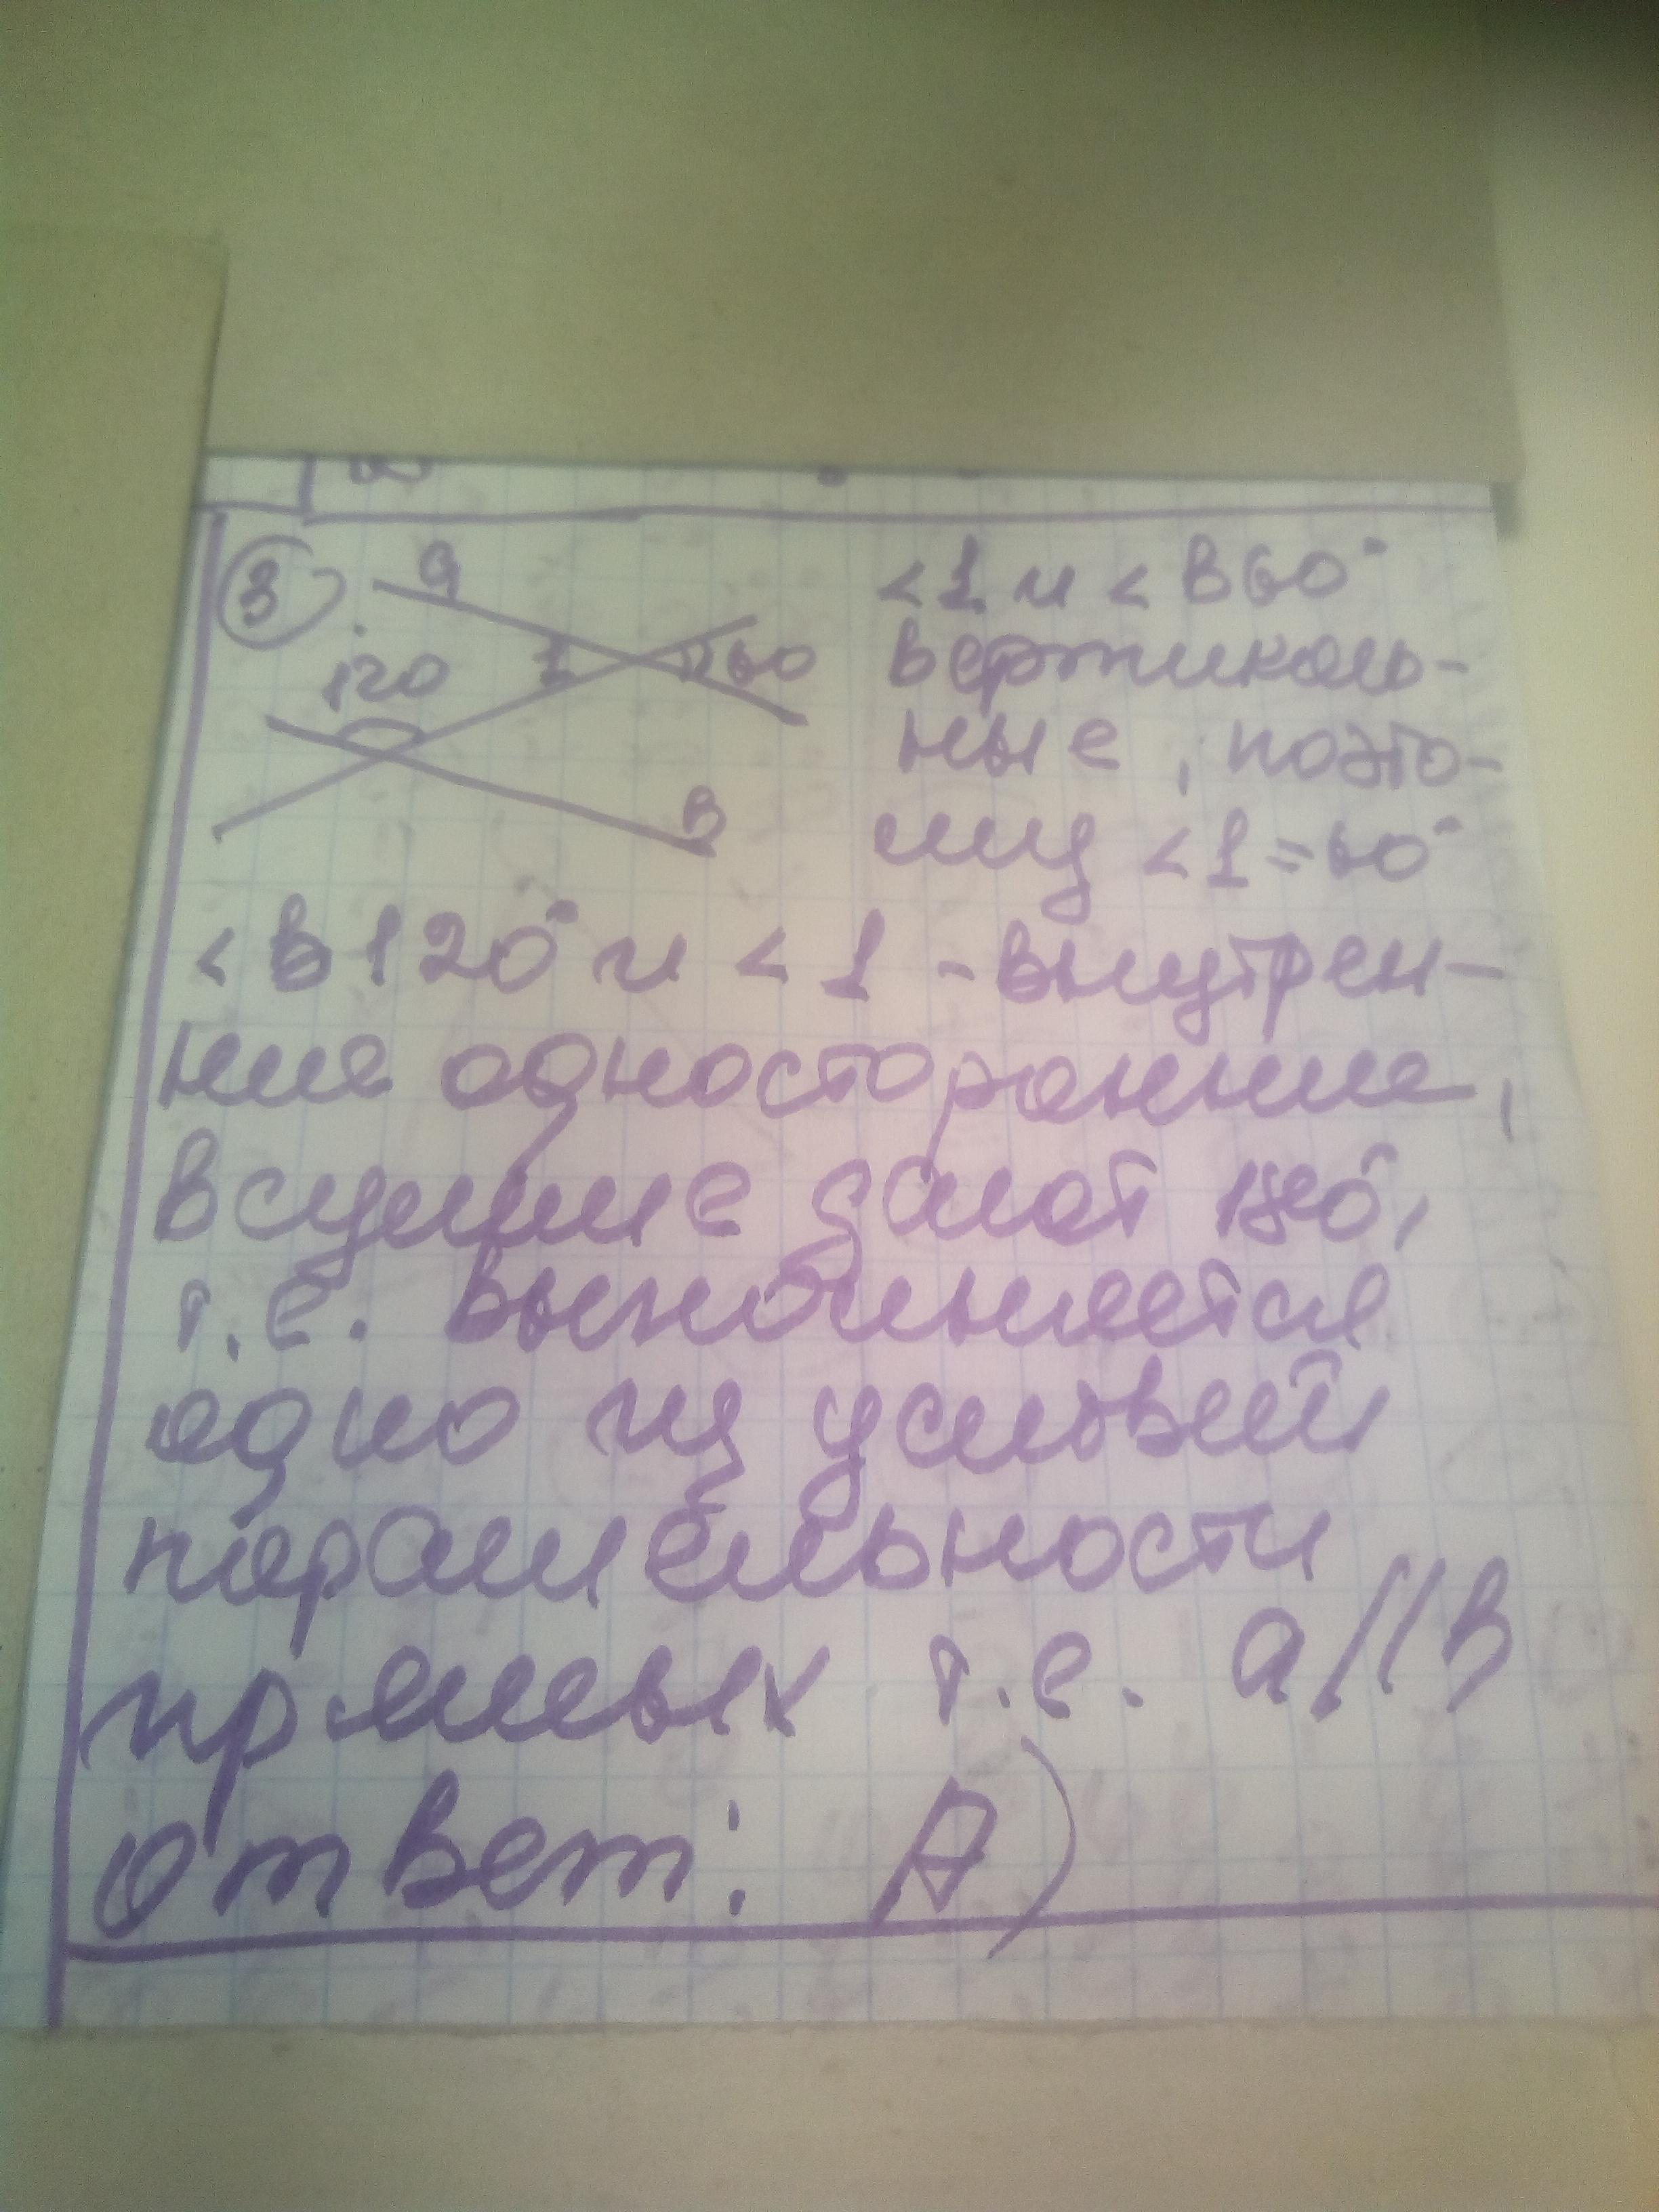 3
а
120
1
60
в
<1 и < в 60°
вертикаль-
ные, поэто-
му <1=60°
< в 120° и <1 - внутрен-
ние односторонние,
в сумме дают 180°,
т.е. выполняется
одно из условий
паралельности
прямых т.е. а//в
ответ: А)